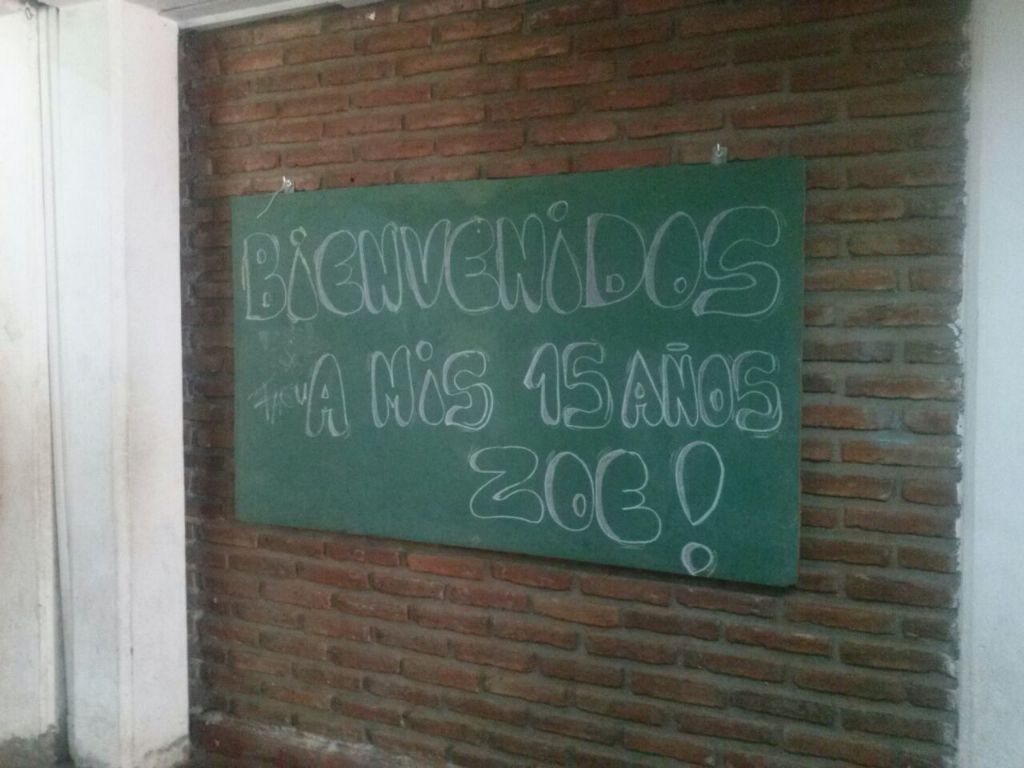 BiENVENiDOS
A MiS 15 AÑOS
ZOE!